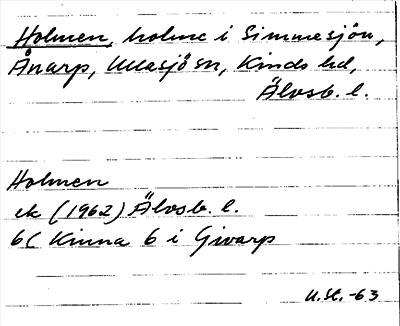 Holmen, holme i Simmesjön,
Ånarp, Ullasjö sn, Kinds hd,
Älvsb. l.
Holmen
ek (1962) Älvsb. l.
6C Kinna 6 i Givarp
U.St.-63